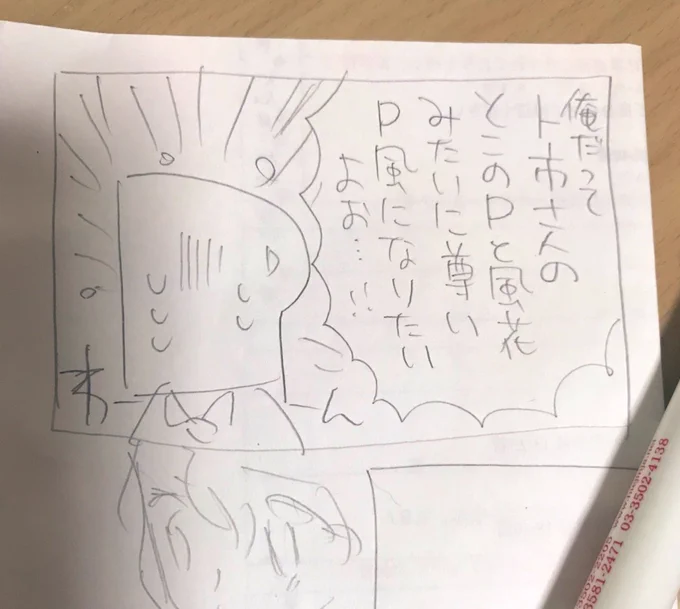 俺だって
ト一市さんの
とこのPと風花
みたいに尊い
P風になりたい
よお…!!
わーーん
03-3502-4138
3502-2205
3581-2471